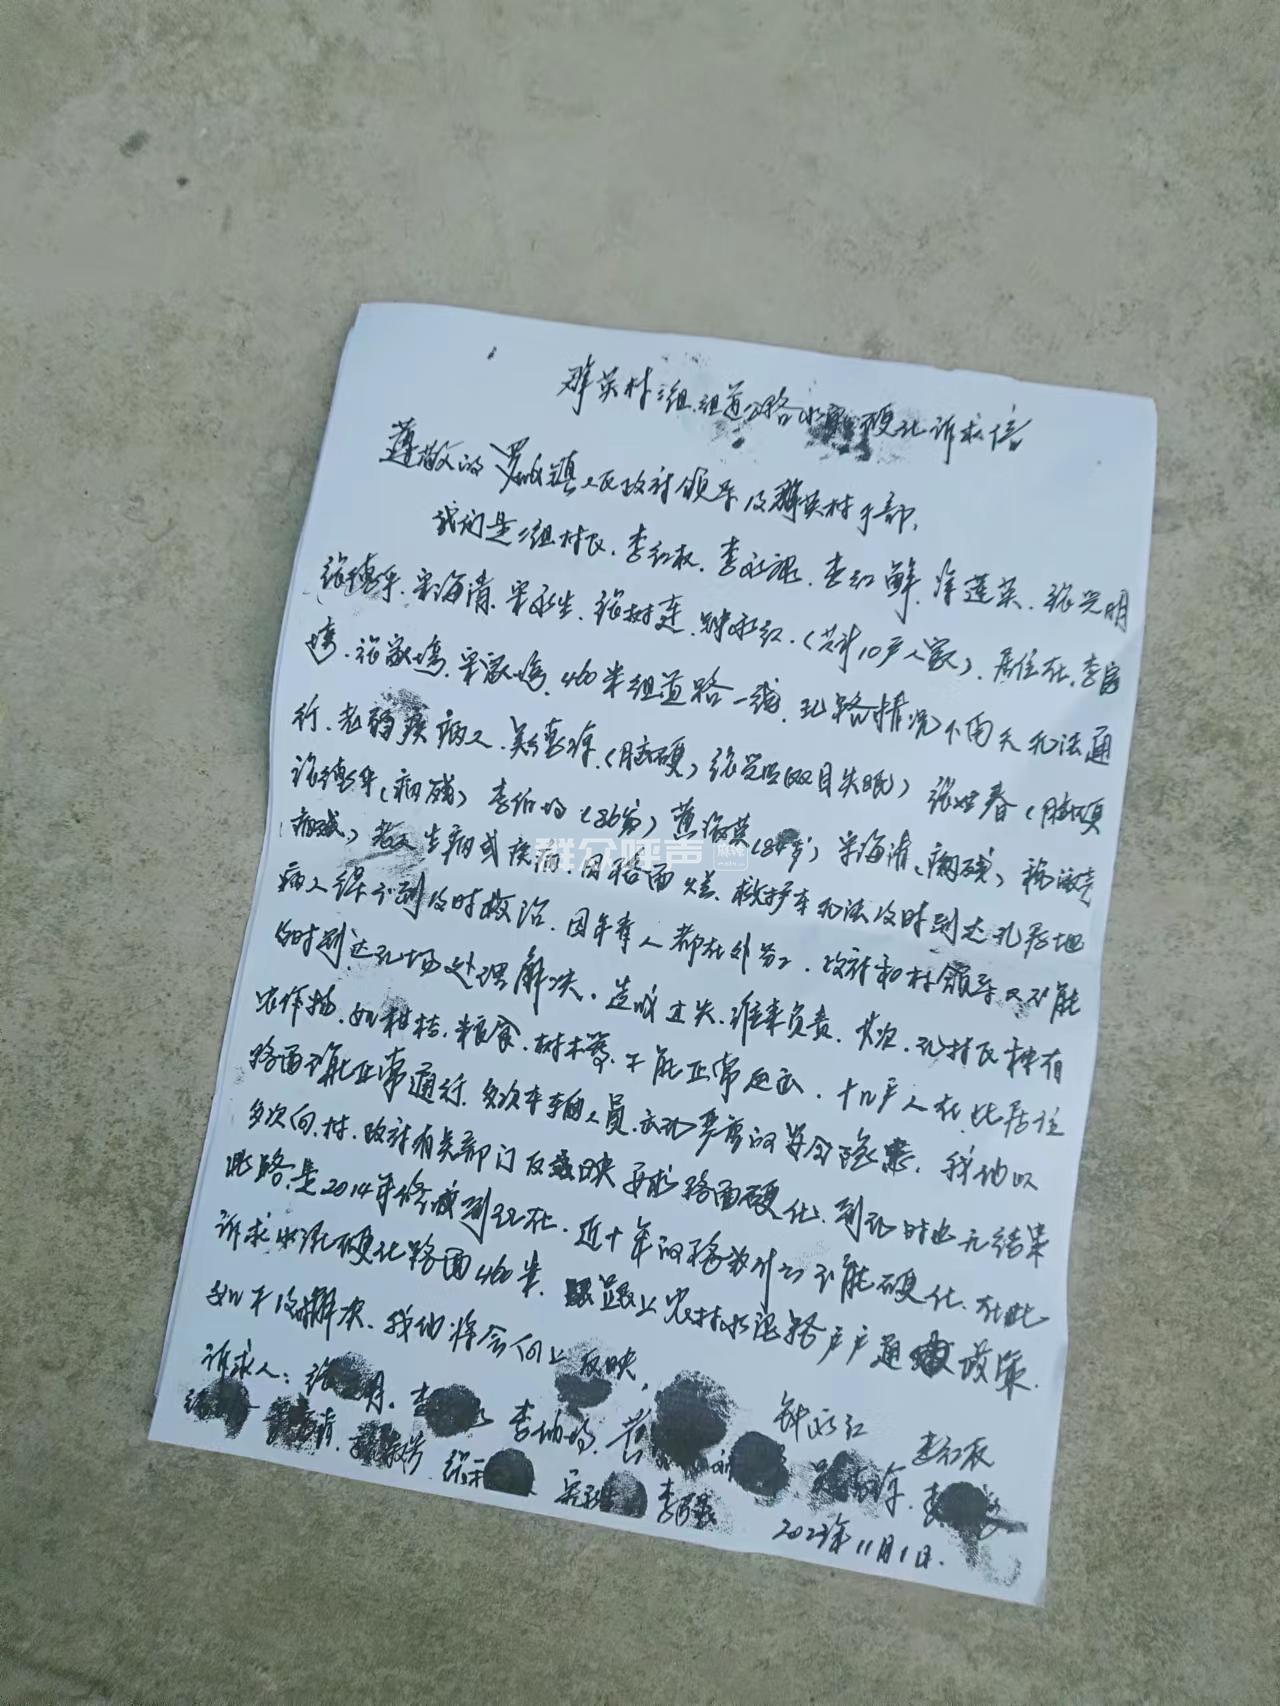 群英村二组.组道公路水泥硬化诉求信
尊敬的罗城镇人民政府领导及群英村干部,
我们是二组村民.李红权.李永禄.李红鲜.淮莲英.张光明
张德华.宋海清.宋永生.张树连.钟永红.(共计10户人家).居住在.李家
塆.张家塆.宋家塆.460米组道路一线.现路情况下雨天无法通
行.老弱疾病人.吴素琼.(脑梗)张光明(双目失眠)张世春(脑梗
张德华(病残)李伯芳(86岁)黄海英(84岁)宋海清(病残)杨淑芳
(病残)老人生病或疾病.因路面烂.救护车无法及时到达现居地
病人得不到及时救治.因年青人都在外务工.政府和村领导又不能
及时到达现场处理解决.造成过失.谁来负责.其次.现村民种有
农作物.如柑桔.粮食.树木等.不能正常运出.十几户人在此居住
路面不能正常通行.多次车辆人员出现严重的安全隐患.我们以
多次向.村.政府有关部门反映要求路面硬化.到现时也无结果
此路.是2014年修成到现在.近十年的路为什么不能硬化.在此
诉求水泥硬化路面460米.跟上农村水泥路户户通政策.
如不及时解决.我们将会向上反映.
诉求人:张 月.李 李伯芳.黄 钟永红
清. 淑芳.张 李 李红权
2023年11月1日.
群众呼声
麻辣